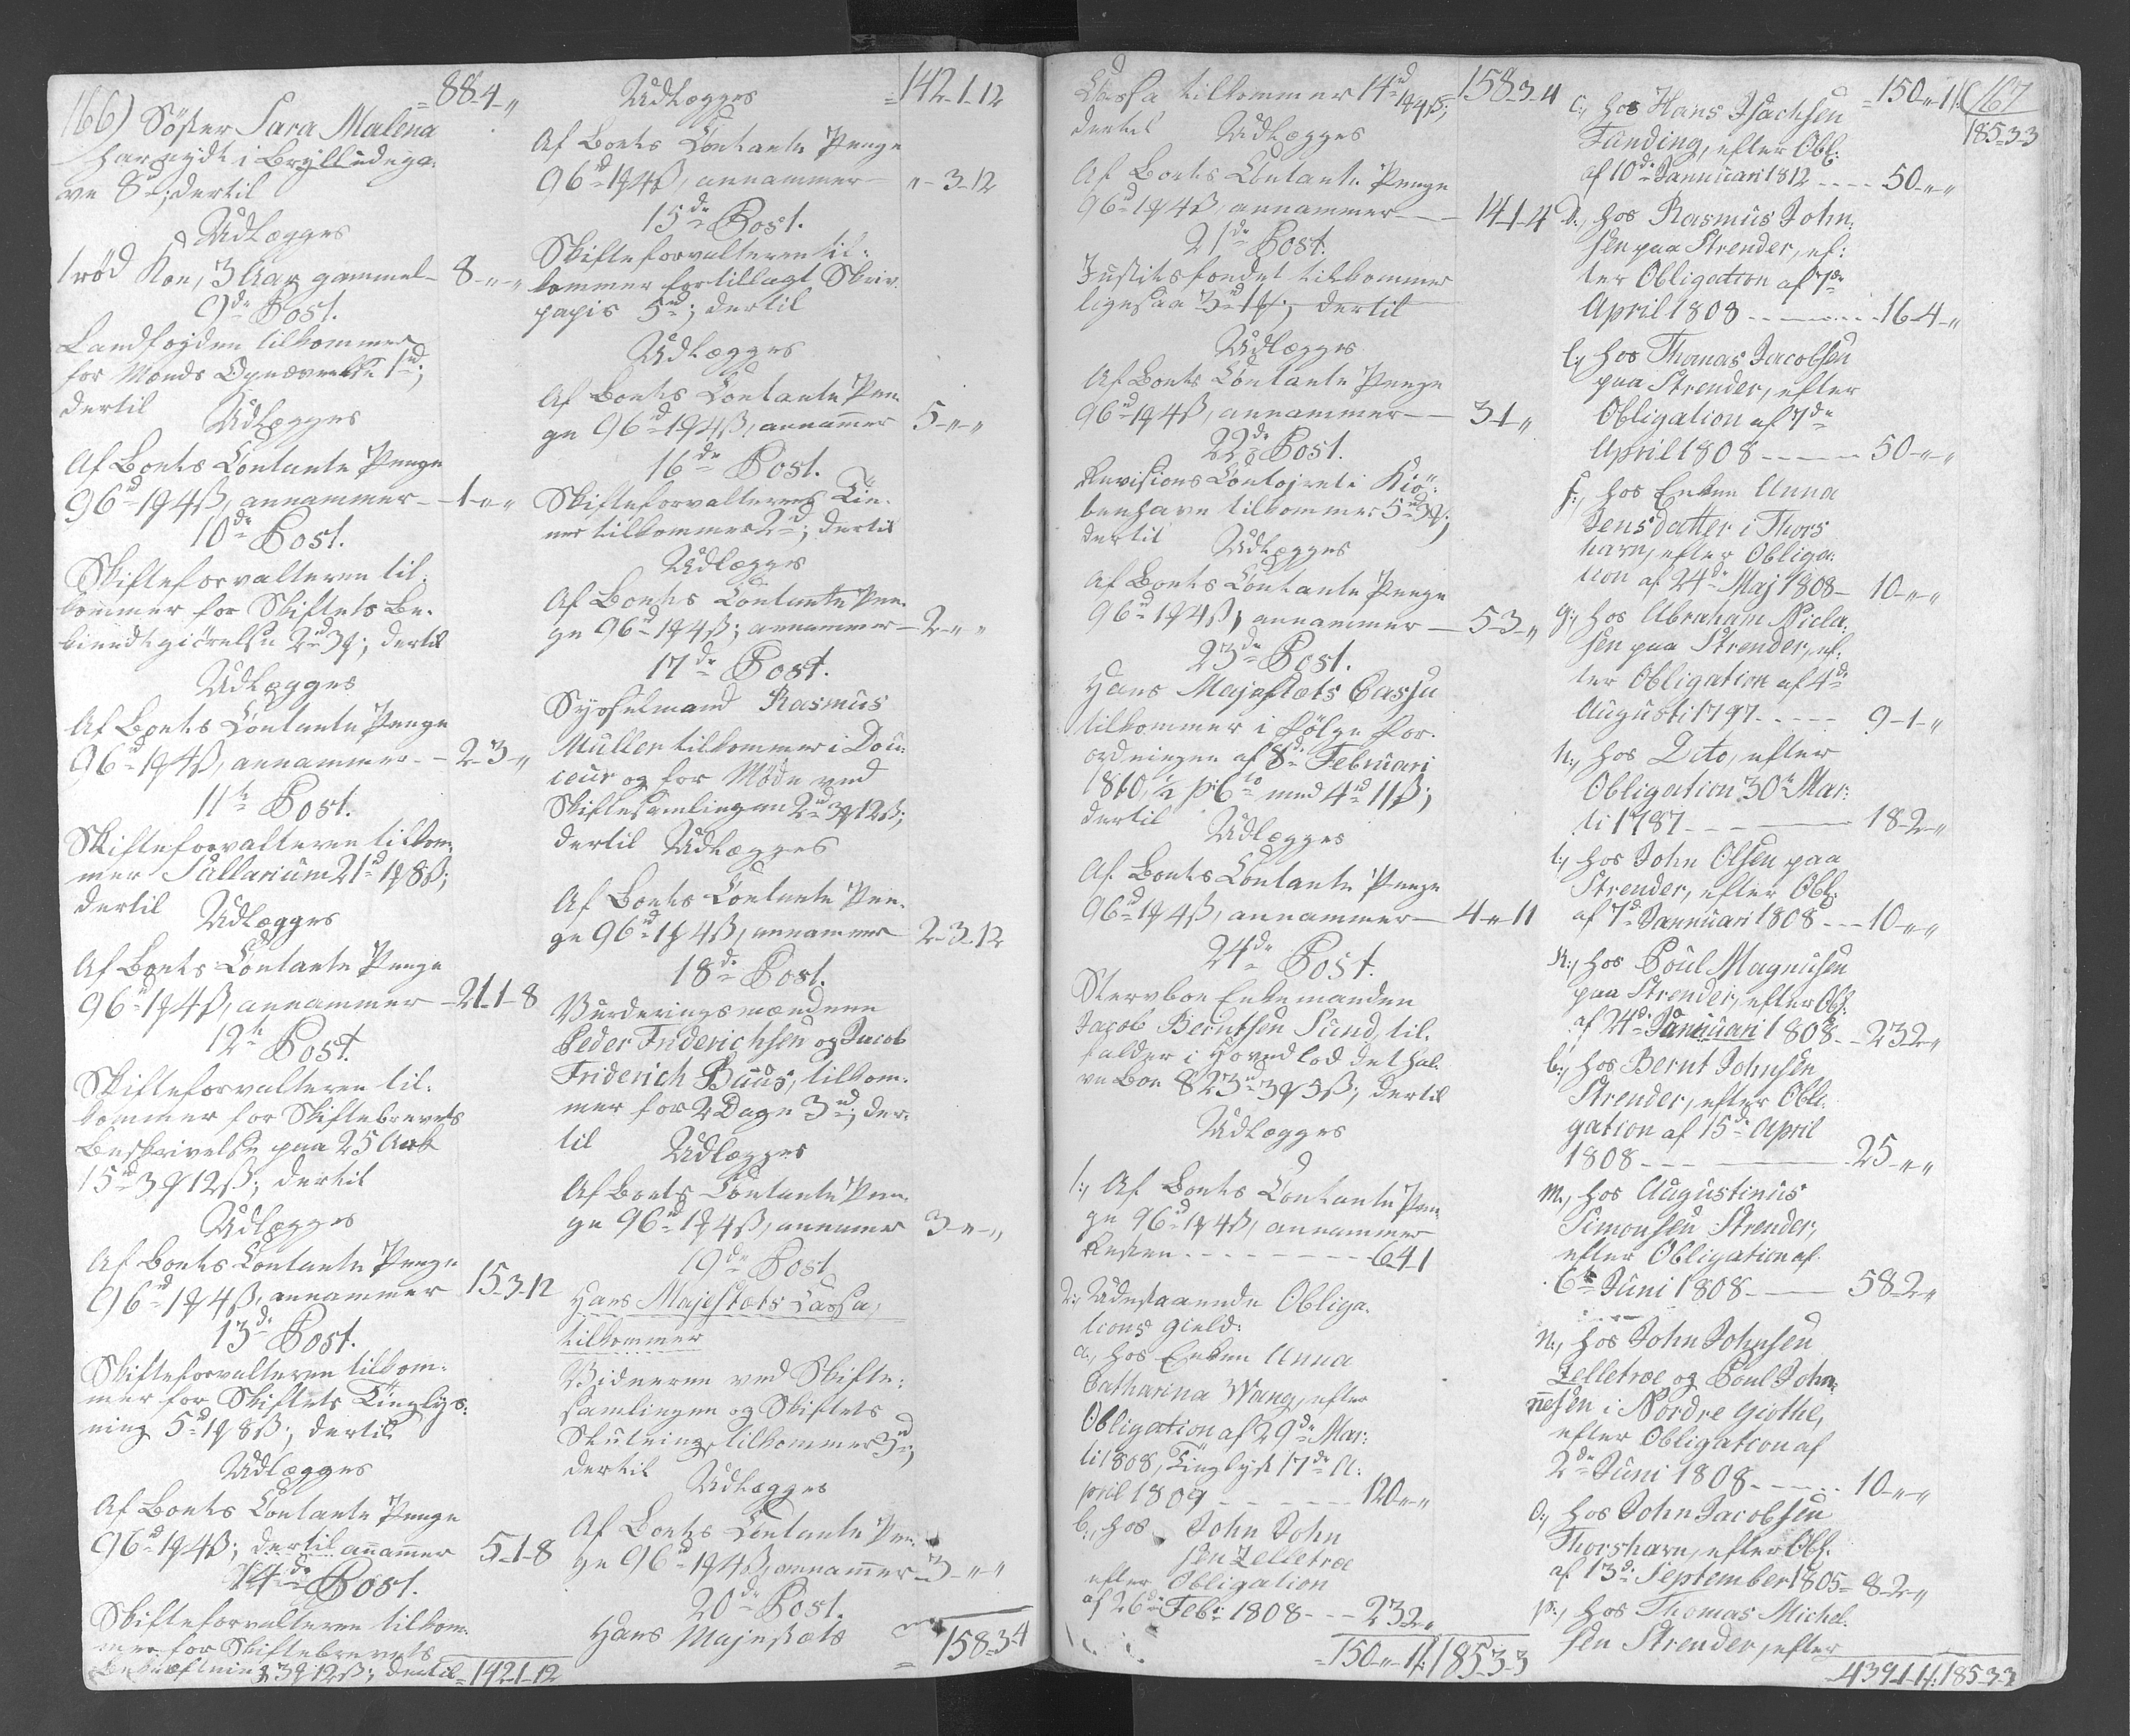 166)
88-4-"
Söster Sara Malena
har nydt i Brylludsga-
ve 8 rd; dertil
Udlægges
1 rød Koe, 3 Aar gammel - 8-"-"
9de Post.
Landfogden tilkommer
for Mænds Opnævnelse 1 rd;
dertil
Udlægges
Af Boets Contante Penge
96 rd 1 # 4 ß, annammer - 1-"-"
10de Post.
Skifteforvalteren til-
kommer for Skiftets Be-
kiendtgiørelse 2 rd 3 #; dertil
Udlægges
Af Boets Contante Penge
96 rd 1 # 4 ß, annammer - 2-3-"
11te Post.
Skifteforvalteren tilkom-
mer Sallarium 21 rd 1 # 8 ß;
dertil Udlægges
Af Boets Contante Penge
96 rd 1 # 4 ß, annammer - 21-1-8
12te Post.
Skifteforvalteren til-
kommer for Skiftebrevets
Beskrivelse paa 25 Ark
15 rd 3 # 12 ß; dertil
Udlægges
Af Boets Contante Penge
96 rd 1 # 4 ß, annammer 15-3-12
13de Post.
Skifteforvalteren tilkom-
mer for Skiftets Tinglys-
ning 5 rd 1 # 8 ß; dertil
Udlægges
Af Boets Contante Penge
96 rd 1 # 4 ß; dertil anammer 5-1-8
14de Post.
Skifteforvalteren tilkom-
mer for Skiftebrevets
3 # 12 ß; dertil = 142-1-12
Udlægges = 142-1-12
Af Boets Contante Penge
96 rd 1 # 4 ß, annammer - "-3-12
15de Post.
Skifteforvalteren til-
kommer for tillagt Skriv-
papir 5 rd; dertil
Udlægges
Af Boets Contante Pen-
ge 96 rd 1 # 4 ß, anammer 5-"-"
16de Post.
Skifteforvalterens Tie-
ner tilkommer 2 rd; dertil
Udlægges
Af Boets Contante Pen-
ge 96 rd 1 # 4 ß; annammer - 2-"-"
17de Post.
Sysselmand Rasmus
Müller tilkommer i Dou-
ceur og for Møde ved
Skiftesamlingen 2 rd 3 # 12 ß;
dertil Udlægges
Af Boets Contante Pen-
ge 96 rd 1 # 4 ß, annammer 2-3-12
18de Post.
Vurderingsmændene
Peder Friderichsen og Jacob
Friderich Buus, tilkom-
mer for 2 Dage 3 rd; der-
til Udlægges
Af Boets Contante Pen-
ge 96 rd 1 # 4 ß, annamer 3-"-"
19de Post
Hans Majestæts Cassa,
tilkommer
Vidnerne ved Skifte-
samlingen og Skiftets
Slutning, tilkommer 3 rd;
dertil
Udlægges
Af Boets Contante Pen-
ge 96 rd 1 # 4 ß, anammer - 3-"-"
20de Post.
Hans Majestæts = 158-3-4
Cassa tilkommer 14 rd 1 # 4 ß; 158-3-4
dertil Udlægges
Af Boets Contante Penge
96 rd 1 # 4 ß, annammer - 14-1-4
21de Post.
Justitsfondet tilkommer
ligesaa 3 rd 1 #; dertil
Udlægges
Af Boets Contante Penge
96 rd 1 # 4 ß, annammer - 3-1-"
22de Post.
Revisions Contoiret i Kiö-
benhavn tilkommer 5 rd 3 #;
dertil Udlægges
Af Boets Contante Penge
96 rd 1 # 4 ß, annammer - 5-3-"
23de Post.
Hans Majestæts Cassa
tilkommer i følge For-
ordningen af 8de Februari
1810, ½ pr Cto med 4 rd 11 ß;
dertil Udlægges
Af Boets Contante Penge
96 rd 1 # 4 ß, annammer - 4-"-11
24de Post.
Stervboe Enkemanden
Jacob Berntsen Sund, til-
falder i Hovedlod det hal-
ve Boe 823 rd 3 # 5 ß; dertil
Udlægges
1., Af Boets Contante Pen-
ge 96 rd 1 # 4 ß, annammer
Resten - 6-4-1
2., Udestaaende Obliga-
tions Gield:
a., hos Enken Anna
Catharina Wang, efter
Obligation af 29de Mar-
ti 1808, Tinglyst 17de A-
pril 1809 - 120-"-"
b., hos John John
sen Zelletræ
efter Obligation
af 26de Febr. 1808 - 23-2-"
= 150-"-1 185-3-3
167
= 150-"-1 185-3-3
c., hos Hans Isachsen
Funding, efter Obl:
af 10de Jannuari 1812 - 50-"-"
d., hos Rasmus John-
sen paa Strender, ef-
ter Obligation af 7de
April 1808 - 16-4-"
e., hos Thomas Jacobsen
paa Strender, efter
Obligation af 7de
April 1808 - 50-"-"
f., hos Enken Anna
Jensdatter i Thors
havn, efter Obliga-
tion af 24de Maj 1808 - 10-"-"
g., hos Abraham Nicla-
sen paa Strender, ef-
ter Obligation af 4de
Augusti 1797 - 9-1-"
h., hos Dito, efter
Obligation 30te Mar-
ti 1787 - 18-2-"
i., hos John Olsen paa
Strender, efter Obl:
af 7de Jannuari 1808 - 10-"-"
k., hos Poul Magnusen
paa Strender, efter Obl:
af 24de Jannuari 1808 - 23-2-"
l., hos Bernt Johnsen
Strender, efter Obli-
gation af 15de April
1808 - 25-"-"
m., hos Augustinus
Simonsen Strender,
efter Obligation af
6te Juni 1808 - 58-2-"
n., hos John Johnsen
Zelletræ og Poul Johan-
nesen i Nordre Giöthe,
efter Obligation af
2de Juni 1808 - 10-"-"
o., hos John Jacobsen
Thorshavn, efter Obl:
af 13de September 1805 - 8-2-"
p., hos Thomas Michel-
sen Strender, efter
439-1-1 185-3-3